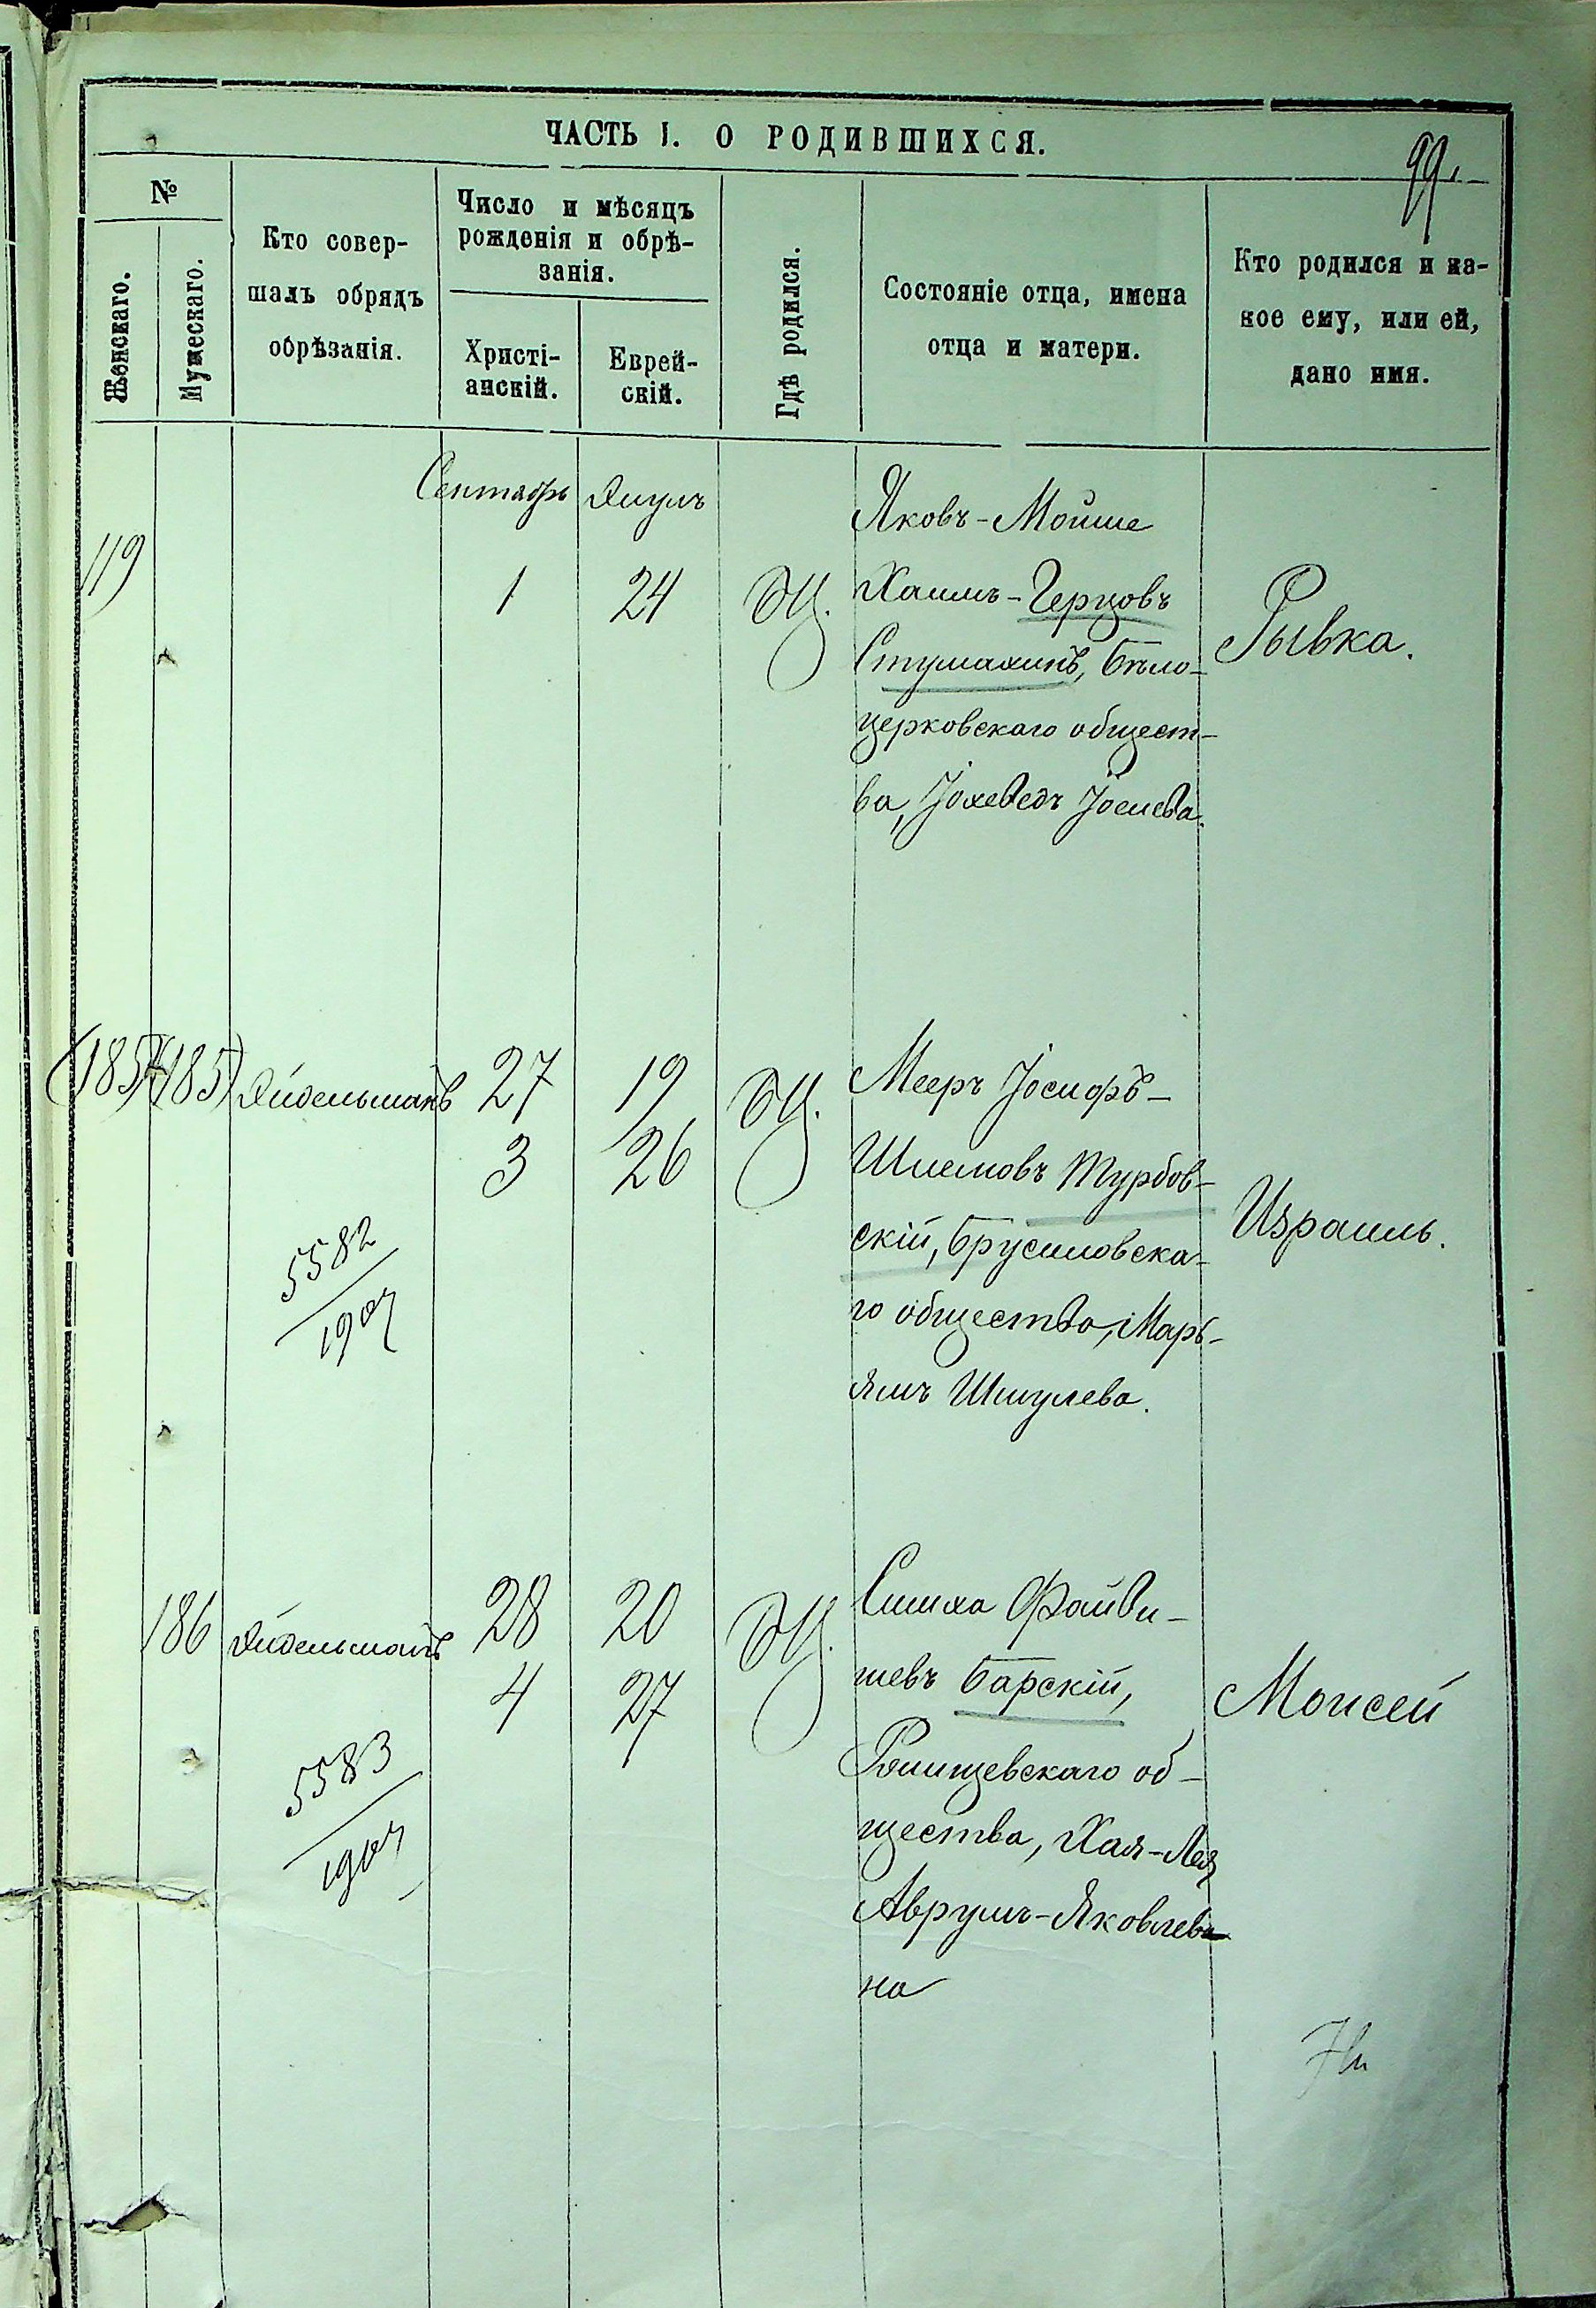 ЧАСТЬ I. О РОДИВШИХСЯ.
99.
№
Женскаго.
Мужескаго.
Кто совер-
шалъ обрядъ
обрѣзанія.
Число и мѣсяцъ
рожденія и обрѣ-
занія.
Христі-
анскій.
Еврей-
скій.
Гдѣ родился.
Состояніе отца, имена
отца и матери.
Кто родился и ка-
кое ему, или ей,
дано имя.
Сентябрь
119
1
24
БЦ.
Яковъ-Мойше
Хаимъ-Герцовъ
Стумахинъ, Бѣло-
церковскаго общест-
ва, Іохеведъ Іосиева.
Рывка.
(185)
(185)
Эйдельманъ
27 19
3 26
БЦ.
5582
1907
Мееръ Іосифъ-
Шлемовъ Турбов-
скій, Брусиловска-
го общества, Марь-
ямъ Шмулева.
Израиль.
186
Эйдельманъ
28 20
4 27
БЦ.
5583
1907
Симха Файви-
шевъ Барскій,
общества, Хая-Лея
Аврумъ-Яковлев-
на
Моисей